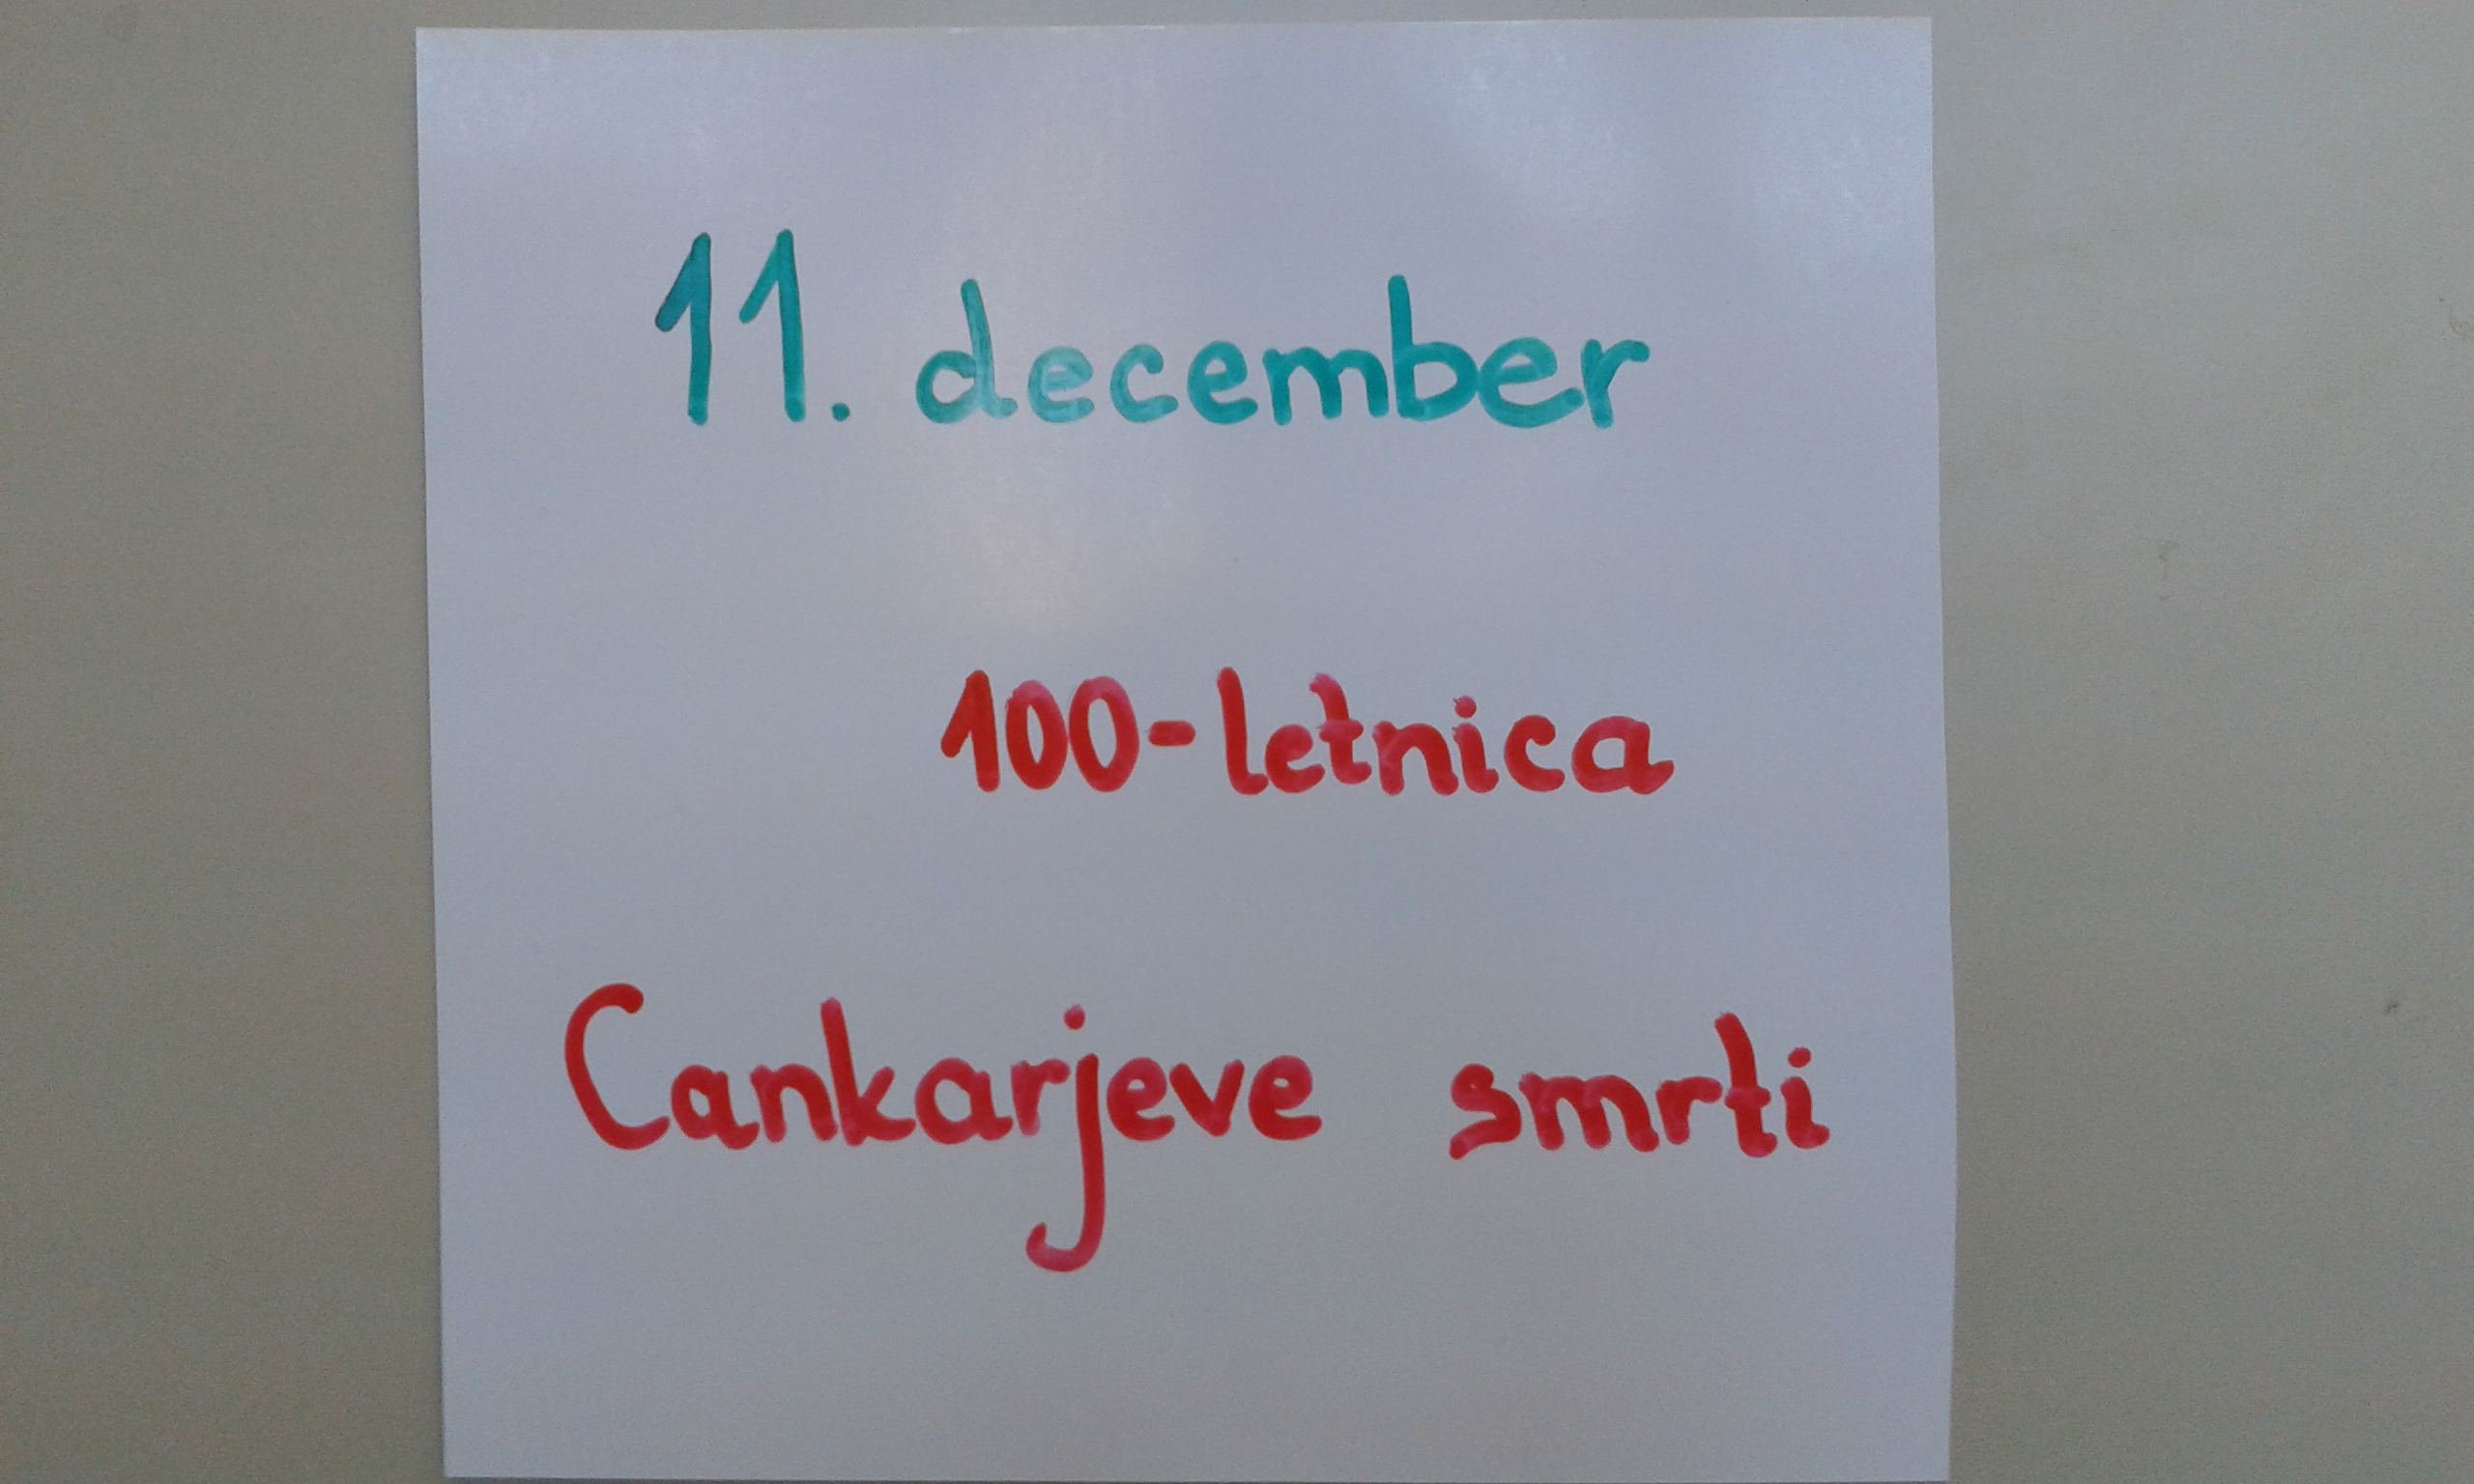 11. december
100-letnica
Cankarjeve smrti